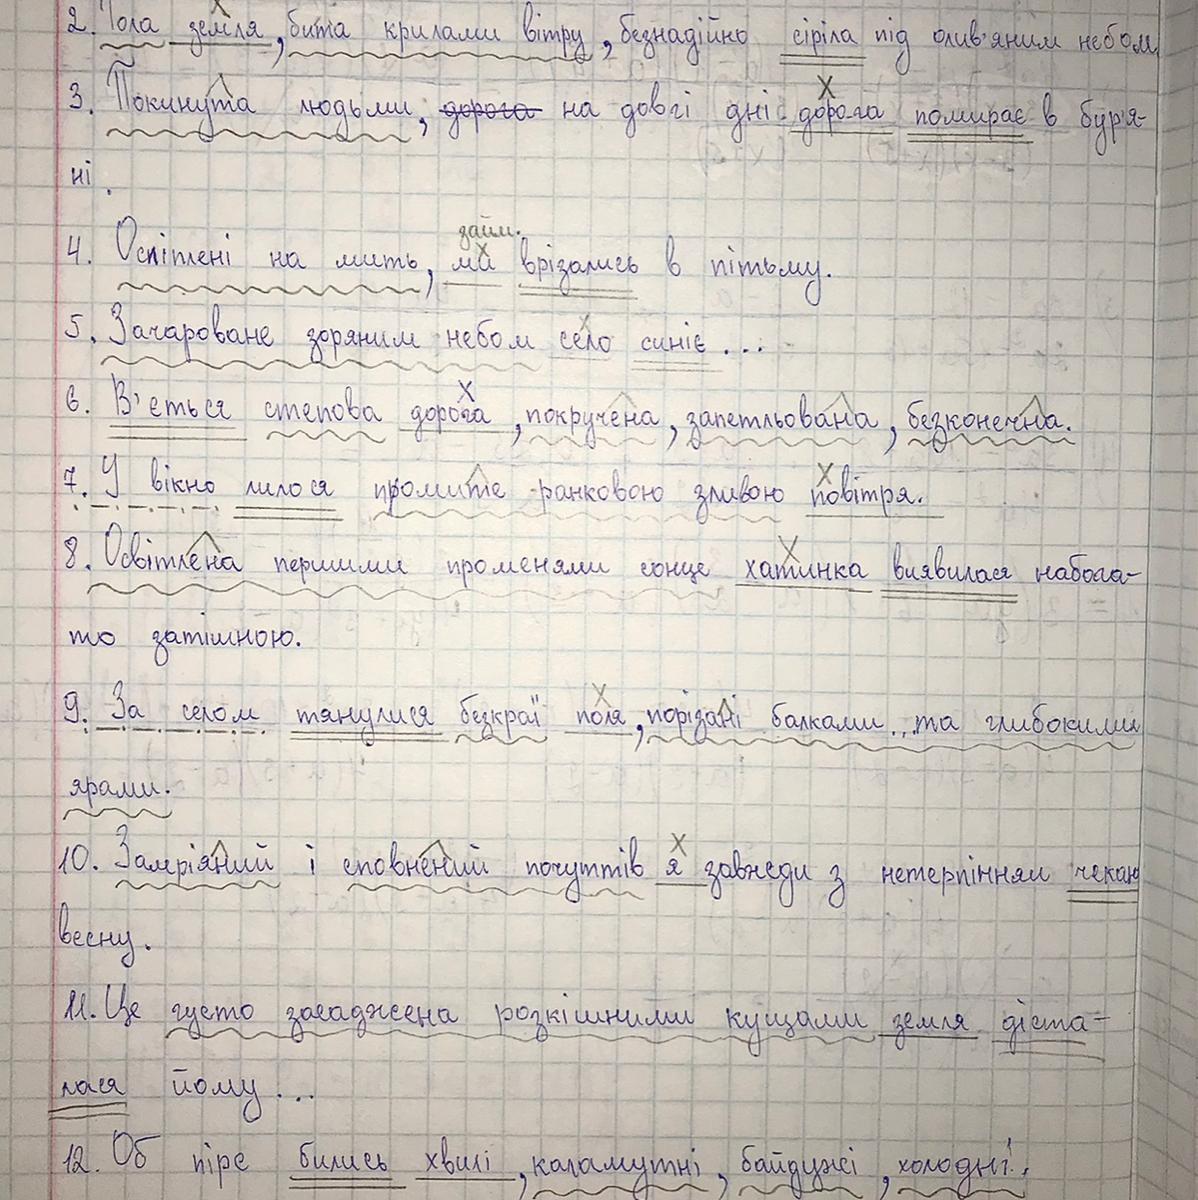 2. Гола земля, бита крилами вітру, безнадійно сіріла під олив'яним небом
3. Покинута людьми, дорога на довгі дні дорога помирає в бур'я-
ні.
займ.
4. Осліплені на мить, ми врізались в пітьму.
5. Зачароване зоряним небом село синіє...
6. В'ється степова дорога, покручена, запетльована, безконечна.
7. У вікно лилося промите ранковою зливою повітря.
8. Освітлена першими променями сонце хатинка виявилася набага-
то затішною.
9. За селом тянулися безкраї поля, порізані балками та глибокими
ярами.
10. Замріяний і сповнений почуттів я завжди з нетерпінням чекаю
весну.
11. Це густо засаджена розкішними кущами земля діста-
лася йому...
12. Об пірс бились хвилі, каламутні, байдужі, холодні.